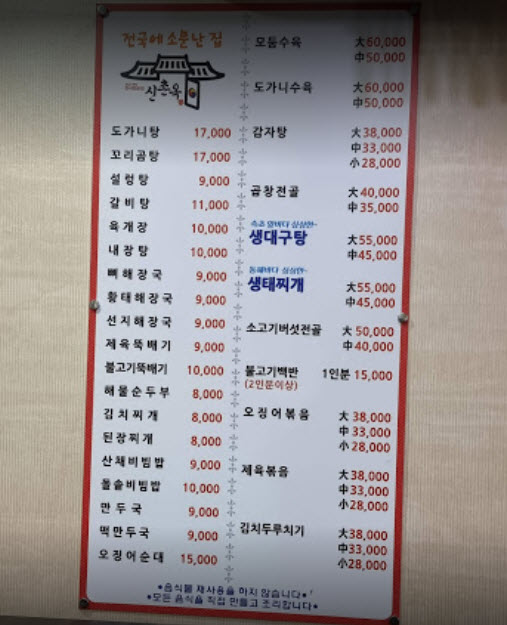 전국에 소문난 집
산촌옥
도가니탕 17,000
꼬리곰탕 17,000
설렁탕 9,000
갈비탕 11,000
육개장 10,000
내장탕 10,000
뼈해장국 9,000
황태해장국 9,000
선지해장국 9,000
제육뚝배기 9,000
불고기뚝배기 10,000
해물순두부 8,000
김치찌개 8,000
된장찌개 8,000
산채비빔밥 9,000
돌솥비빔밥 10,000
만두국 9,000
떡만두국 9,000
오징어순대 15,000
모둠수육 大60,000
中50,000
도가니수육 大60,000
中50,000
감자탕 大38,000
中33,000
小28,000
곱창전골 大40,000
中35,000
속초 앞바다 싱싱한~
생대구탕 大55,000
中45,000
동해바다 싱싱한~
생태찌개 大55,000
中45,000
소고기버섯전골 大50,000
中40,000
불고기백반 1인분 15,000
(2인분이상)
오징어볶음 大38,000
中33,000
小28,000
제육볶음 大38,000
中33,000
小28,000
김치두루치기 大38,000
中33,000
小28,000
•음식물 재사용을 하지 않습니다•
•모든 음식을 직접 만들고 조리합니다•